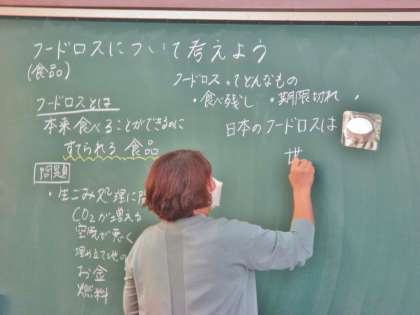 フードロスについて考えよう
(食品)
フードロスってどんなもの
・食べ残し ・期限切れ
フードロスとは
本来食べることができるのに
すてられる 食品
日本のフードロスは
世
問題
・生ごみ処理に
CO2が増える
空気が悪く
埋め立て地の
お金
燃料